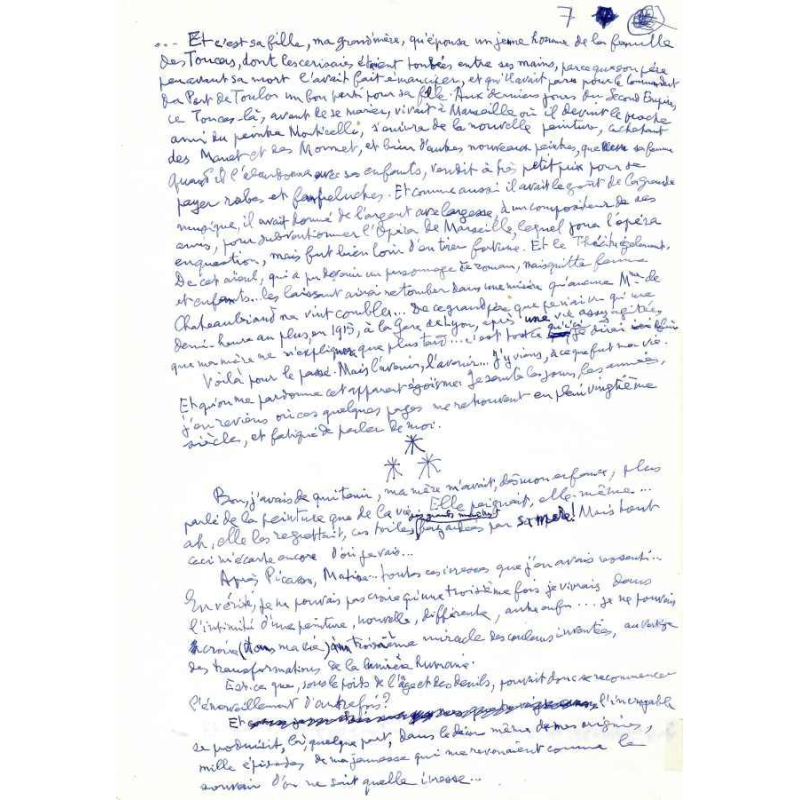 7
... Et c'est sa fille, ma grand'mère, qu'épousa un jeune homme de la famille
des Toucas, dont les cerisaies étaient tombées entre ses mains, parce que son père
peu avant sa mort l'avait fait émanciper, et qu'il avait paru pour le Commandant
du Port de Toulon un bon parti pour sa fille. Aux derniers jours du Second Empire,
ce Toucas-là, avant de se marier, vivait à Marseille où il devint le proche
ami du peintre Monticelli, s'enivra de la nouvelle peinture, achetant
des Manet et des Monnet, et bien d'autres nouveaux peintres, que sa femme
quand il l'abandonna avec ses enfants, vendit à très petit prix pour se
payer robes et fanfreluches. Et comme aussi il avait le goût de la grande
musique, il avait donné de l'argent avec largesse, à un compositeur de ses
amis, pour subventionner l'Opéra de Marseille, lequel joua l'opéra
en question, mais fut bien loin d'en tirer fortune. Et le Théâtre également.
De cet aïeul, qui a pu devenir un personnage de roman, mais quitta femme
et enfants... les laissant ainsi retomber dans une misère qu'aucune Mme de
Chateaubriand ne vint combler... De ce grand-père que je n'ai vu qu'une
demi-heure au plus, en 1915, à la Gare de Lyon, après une vie assez agitée
que ma mère ne m'expliqua que plus tard... c'est tout ce qu'ici je dirai
Voilà pour le passé. Mais l'avenir, l'avenir... J'y viens, à ce que fut ma vie.
Et qu'on me pardonne cet apparent égoïsme. Je saute les jours, les années,
j'en reviens où ces quelques pages me retrouvent en plein vingtième
siècle, et fatigué de parler de moi.
Bon, j'avais de qui tenir, ma mère m'avait, dès mon enfance, plus
parlé de la peinture que de la vie. Elle peignait, elle-même...
ah, elle les regrettait, ces toiles par sa mère! Mais tout
ceci m'écarte encore d'où je vais...
Après Picasso, Matisse... toutes ces ivresses que j'en avais ressenti...
En vérité, je ne pouvais pas croire qu'une troisième fois je vivrais dans
l'intimité d'une peinture, nouvelle, différente, autre enfin... je ne pouvais
croire (dans ma vie) à un troisième miracle des couleurs inventées, au vertige
des transformations de la lumière humaine.
Est-ce que, sous le poids de l'âge et des deuils, pouvait donc se recommencer
l'émerveillement d'autrefois?
Et l'incroyable
se produisit, là, quelque part, dans le décor même de mes origines,
mille épisodes de ma jeunesse qui me revenaient comme le
souvenir d'on ne sait quelle ivresse...